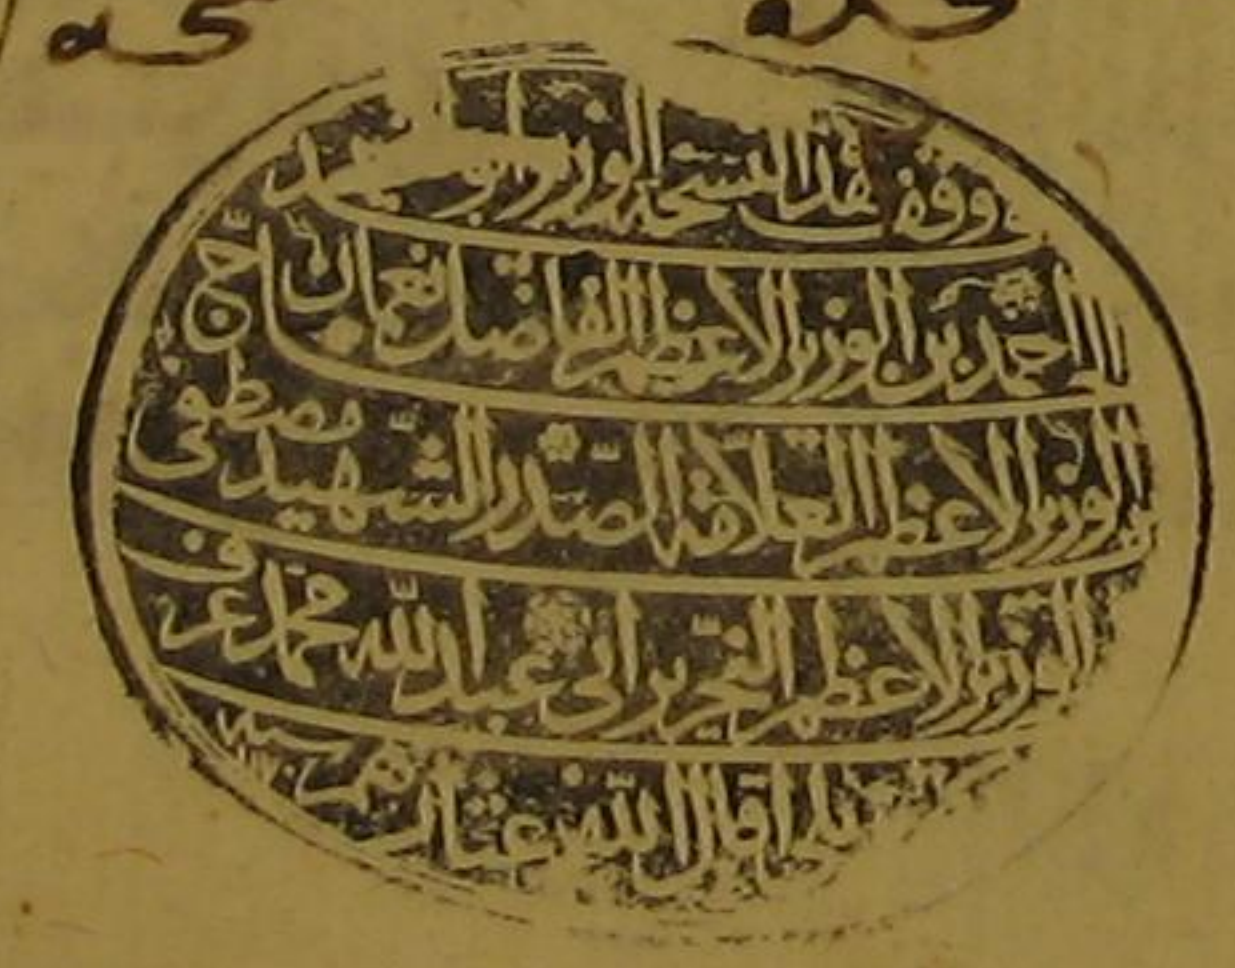 وقف هذا النسخة الوزير أبو
احمد بن الوزير الاعظم الفاضل نعمان
الوزير الاعظم العلامة الصدر الشهيد مصطفى
الوزير الاعظم النحرير ابى عبد الله محمد عرف
اقال الله عثارهم